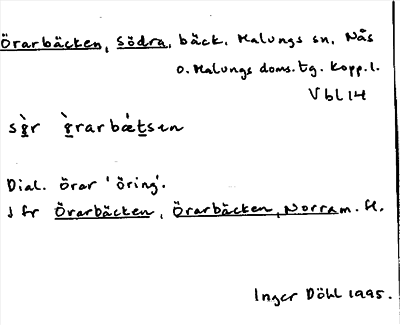 Örarbäcken, Södra, bäck, Malungs sn, Nås
o. Malungs doms. tg. Kopp. l.
Vbl 14
Dial. örar 'öring'.
Jfr Örarbäcken, Örarbäcken, Norra m. fl.
Inger Döhl 1995.